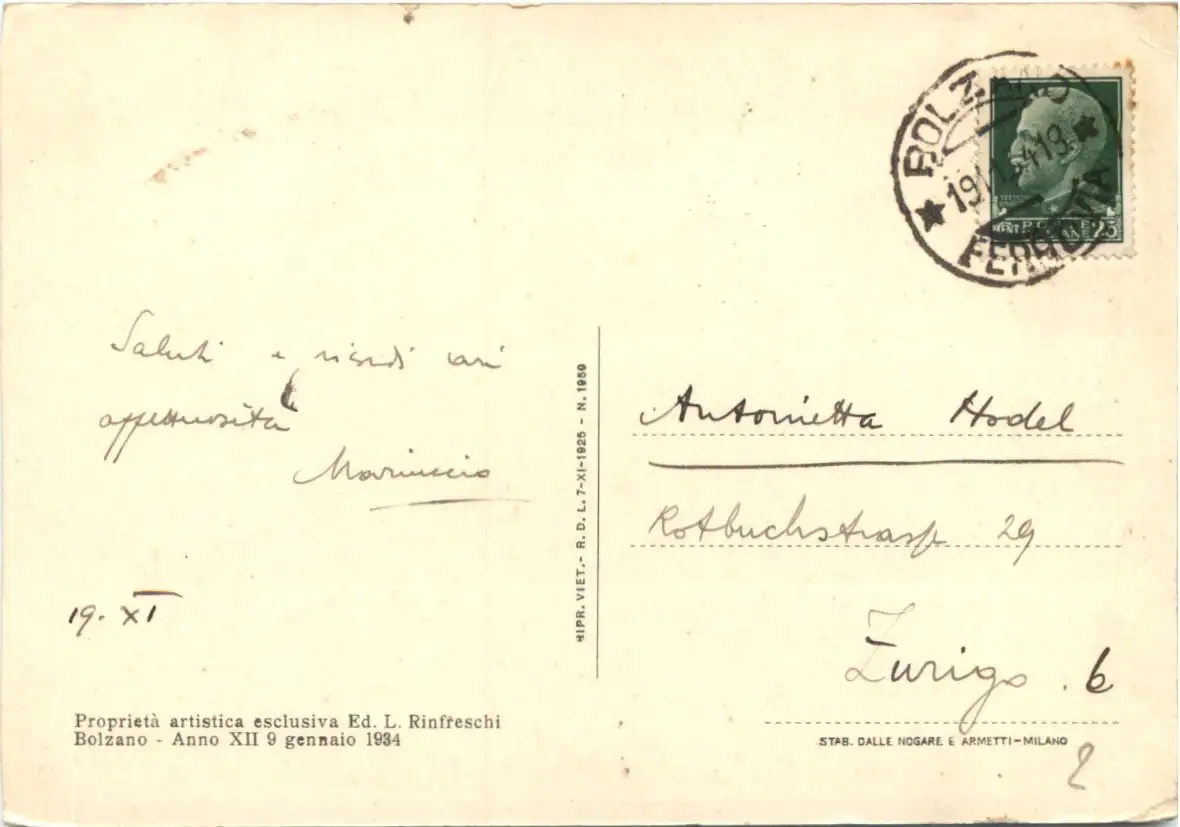 BOLZANO
19 11 34 13
FERROVIA
POSTE
ITALIANE 25
Saluti e
affettuosità
Mariuccio
19. XI
Antonietta Hodel
Rotbuchstrasse 29
Zurigo . 6
2
RIPR. VIET. - R. D. L. 7-XI-1925 - N. 1959
Proprietà artistica esclusiva Ed. L. Rinfreschi
Bolzano - Anno XII 9 gennaio 1934
STAB. DALLE NOGARE E ARMETTI-MILANO